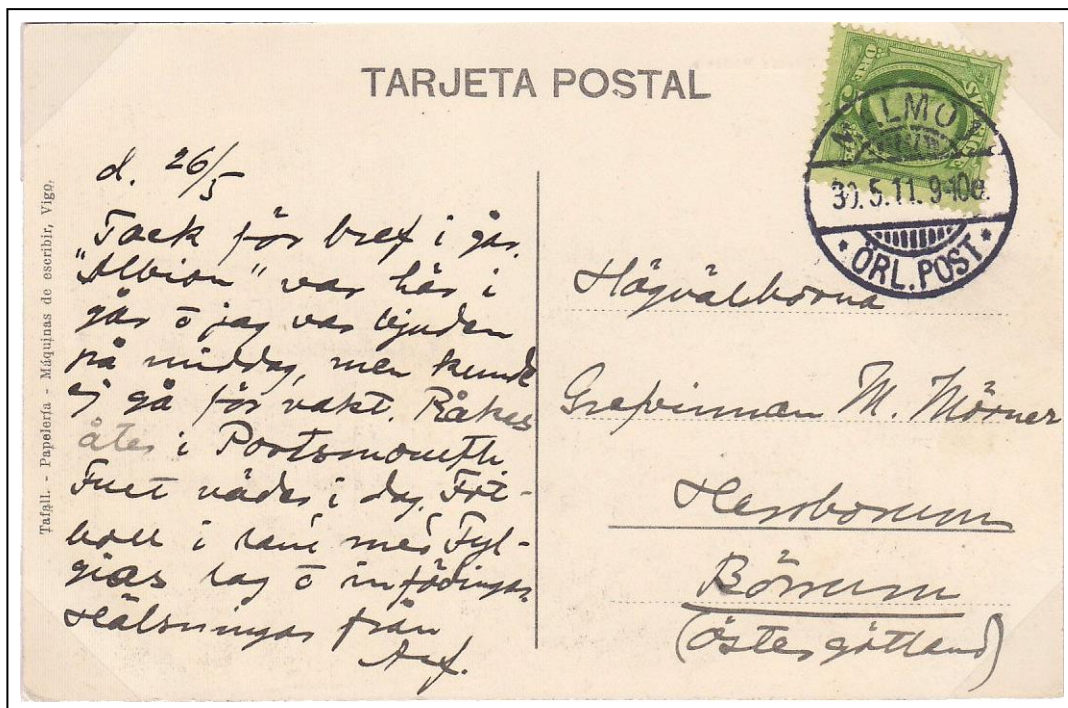 TARJETA POSTAL
MALMÖ 1
30.5.11. 9-10e.
* ÖRL. POST *
Tafall. - Papelería - Máquinas de escribir, Vigo.
d. 26/5
Tack för bref i går.
"Albion" var här i
går o jag var bjuden
på middag, men kunde
ej gå för vakt. Råkas
åter i Portsmouth.
Fint väder i dag. Fot-
boll i land med Fyl-
gias lag o infödingar.
Hälsningar från
Högvälborna
Grefvinnan M. Mörner
Herrborum
Börrum
(Östergötland)